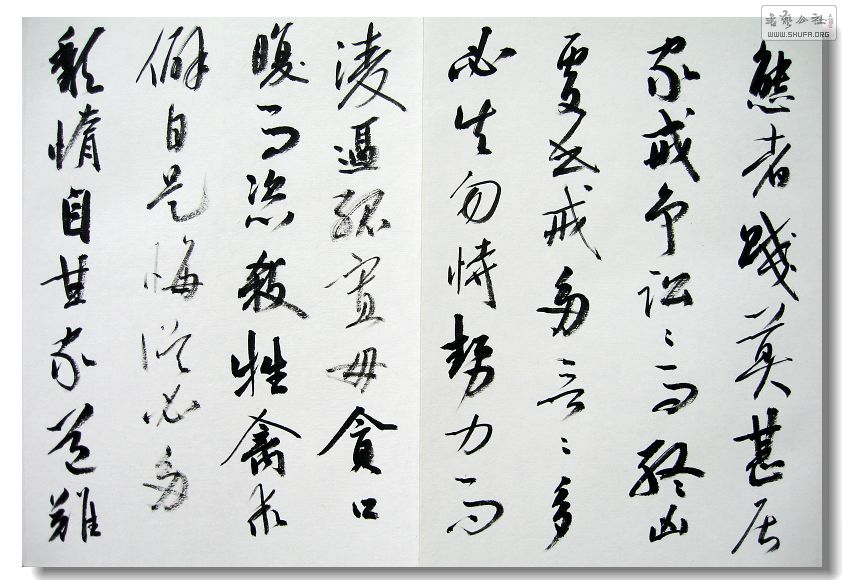 態者賤莫甚居
家戒争訟〻而終凶
處世戒多言〻多
必失勿恃勢力而
淩逼孤寡毋貪口
腹而恣殺牲禽乖
僻自是悔誤必多
頹惰自甘家道難
書藝公社
WWW.SHUFA.ORG